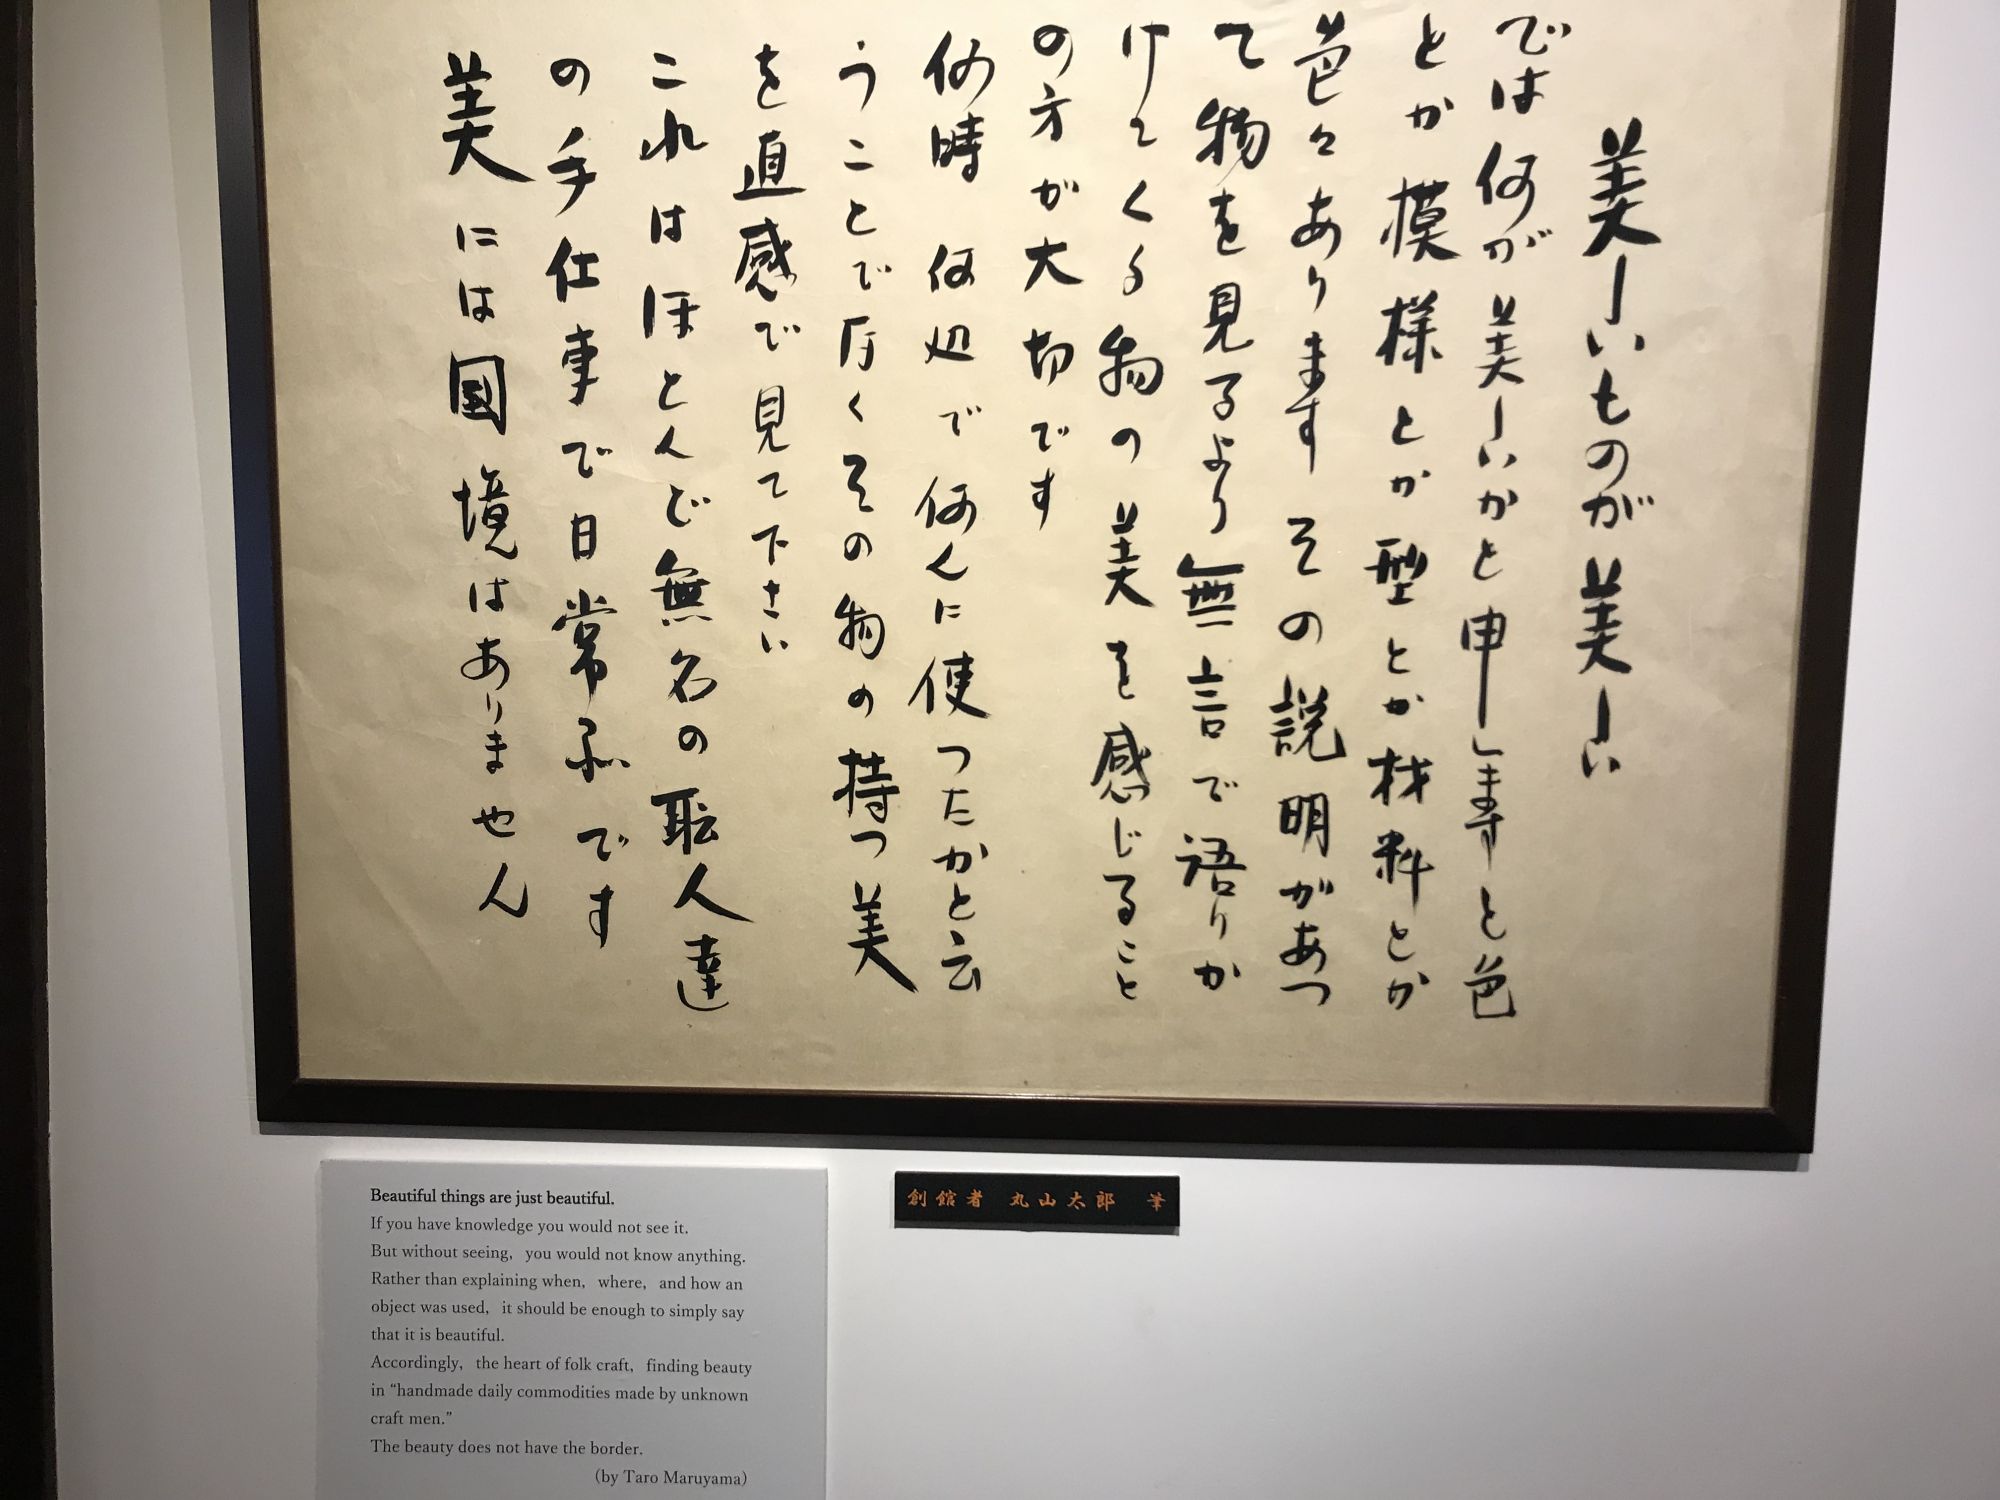 美しいものが美しい
では何が美しいかと申しますと色
とか模様とか型とか材料とか
色々あります その説明があつ
て物を見るより無言で語りか
けてくる物の美を感じること
の方が大切です
何時 何処で何んに使つたかと云
うことで厅くその物の持つ美
を直感で見て下さい
これはほとんど無名の職人達
の手仕事で日常品です
美には国境はありません
Beautiful things are just beautiful.
If you have knowledge you would not see it.
But without seeing, you would not know anything.
Rather than explaining when, where, and how an
object was used, it should be enough to simply say
that it is beautiful.
Accordingly, the heart of folk craft, finding beauty
in “handmade daily commodities made by unknown
craft men.”
The beauty does not have the border.
(by Taro Maruyama)
創館者 丸山太郎 筆